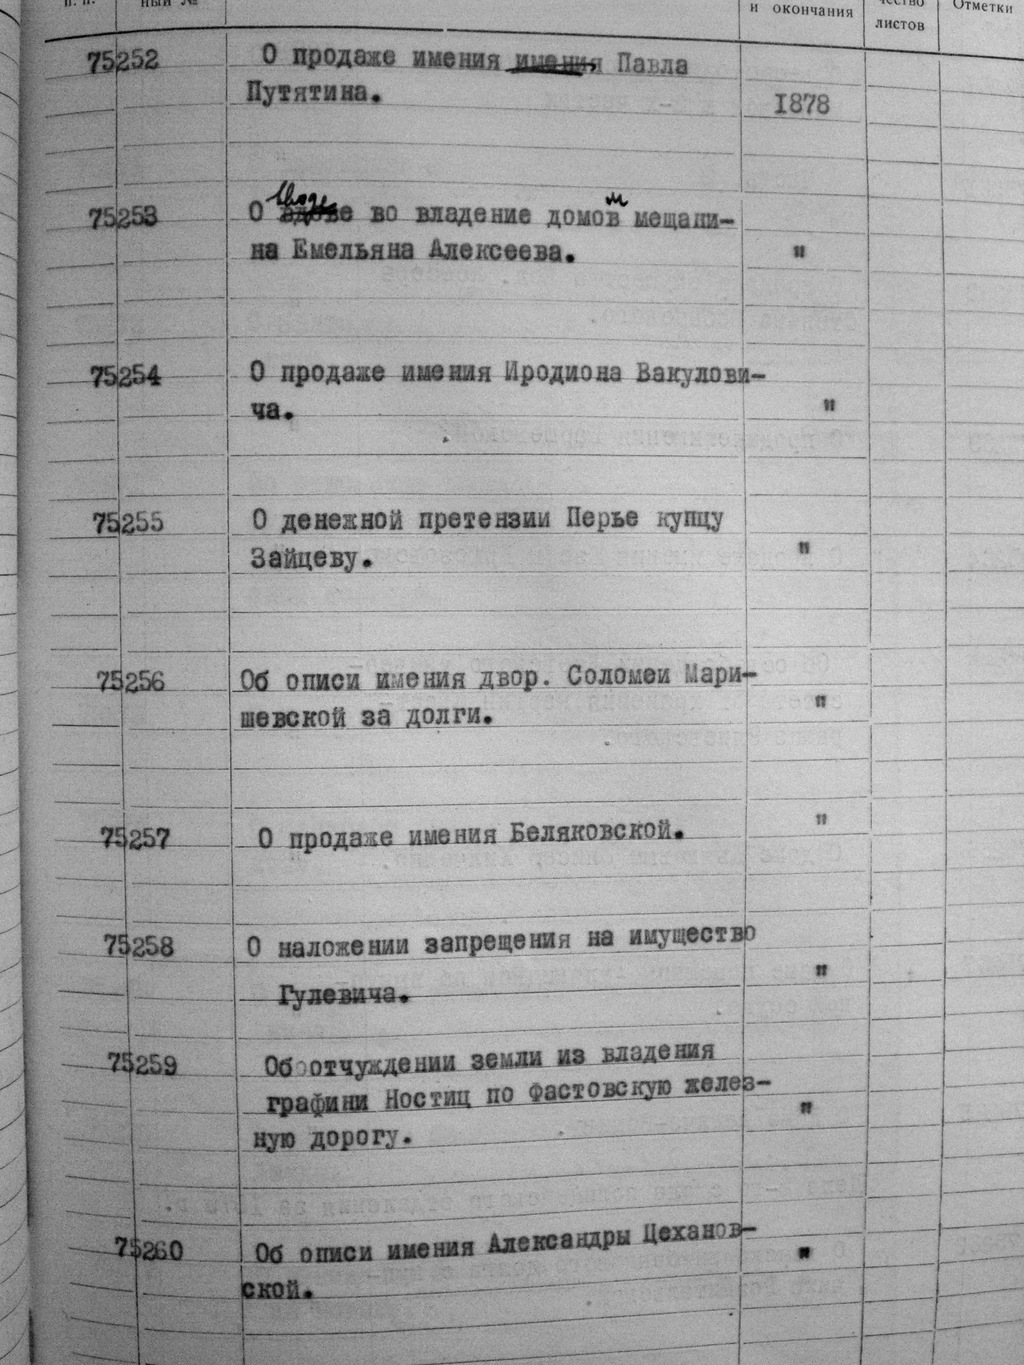 п. п.
ный №
и окончания
чество
листов
Отметки
75252 О продаже имения имения Павла
Путятина.
1878
75253 О вводе во владение домом мещани-
на Емельяна Алексеева. "
75254 О продаже имения Иродиона Вакулови-
ча. "
75255 О денежной претензии Перье купцу
Зайцеву. "
75256 Об описи имения двор. Соломеи Мари-
шевской за долги. "
75257 О продаже имения Беляковской. "
75258 О наложении запрещения на имущество
Гулевича. "
75259 Об отчуждении земли из владения
графини Ностиц по Фастовскую желез-
ную дорогу. "
75260 Об описи имения Александры Цеханов-
ской. "